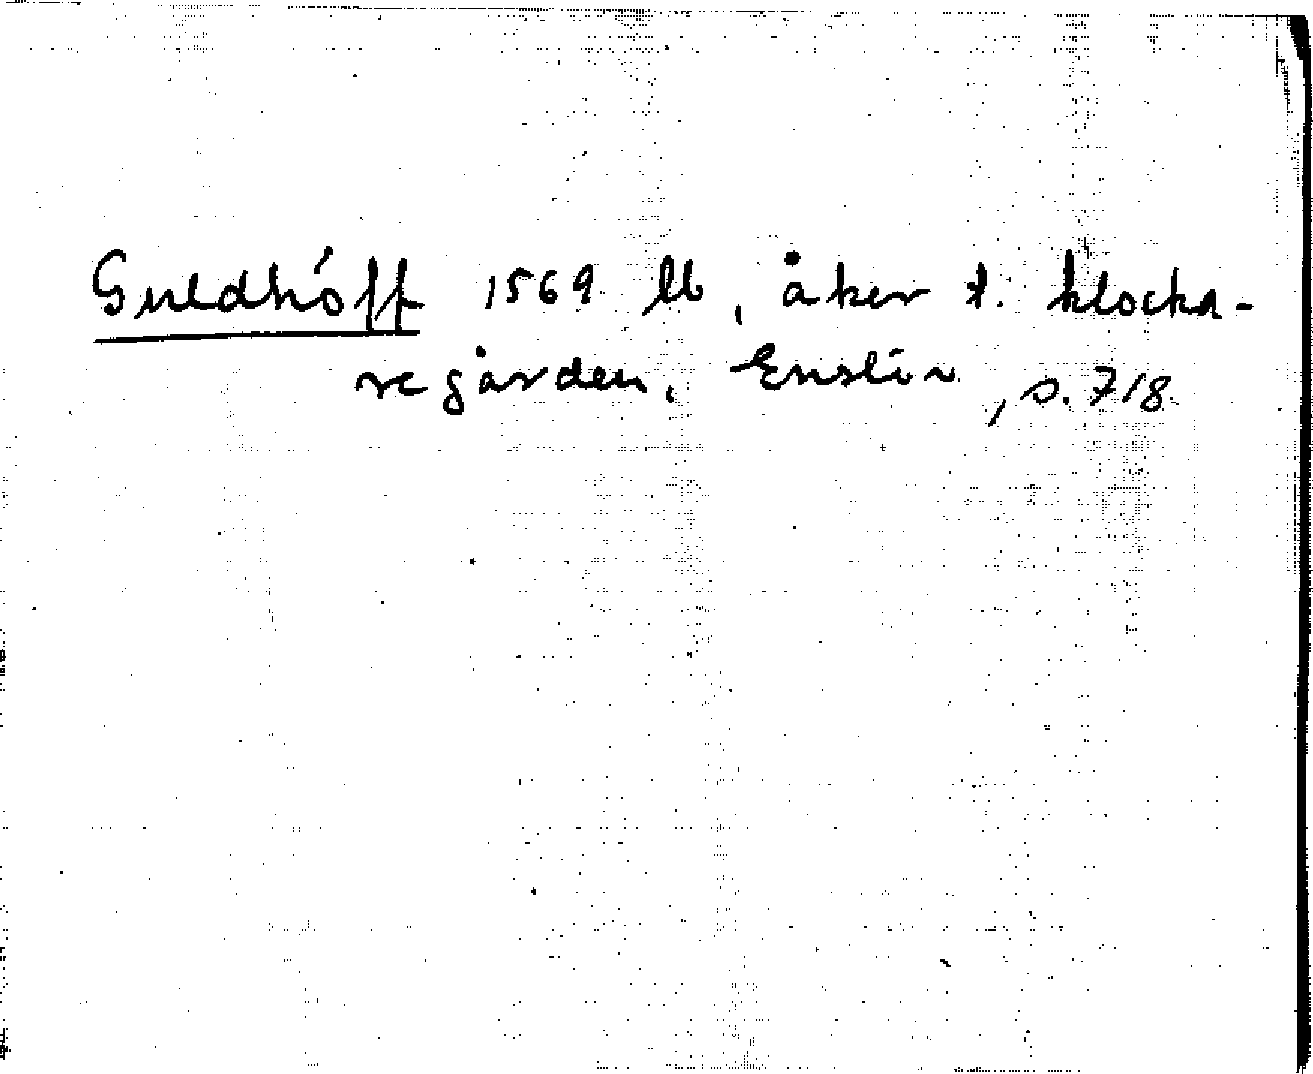 Guldhóff 1569 lb, åker t. klocka-
regården. Enslöv, s. 718